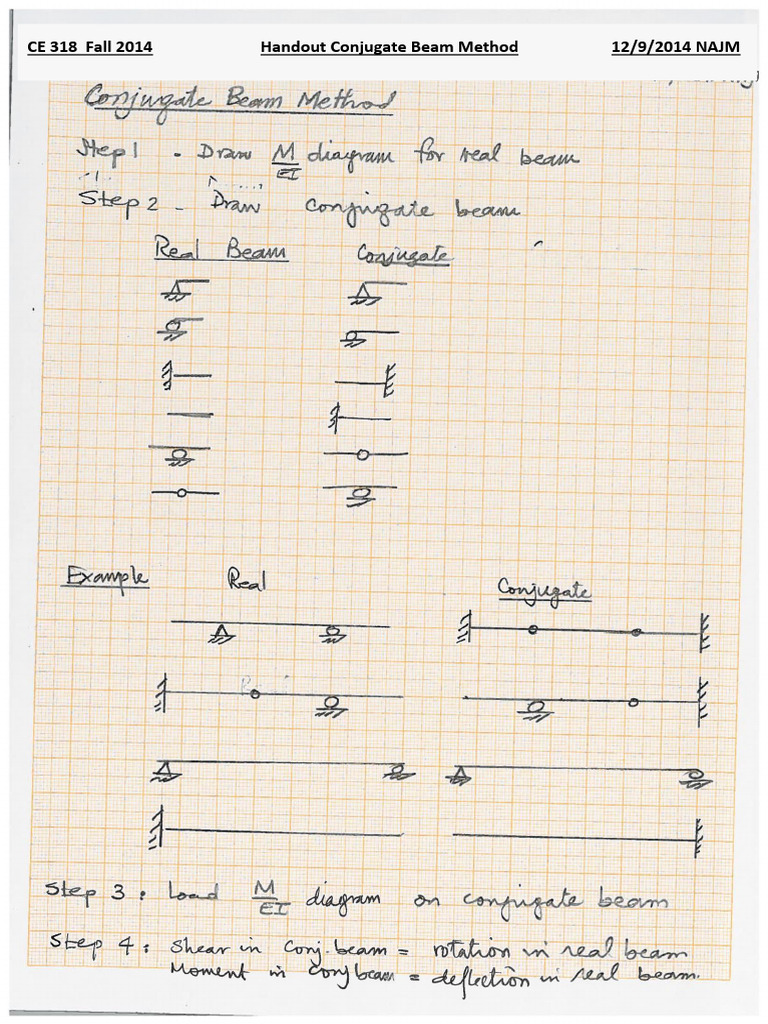 CE 318 Fall 2014 Handout Conjugate Beam Method 12/9/2014 NAJM
Conjugate Beam Method
Step 1 - Draw M/EI diagram for real beam
Step 2 - Draw conjugate beam
Real Beam Conjugate
Example Real Conjugate
Step 3: Load M/EI diagram on conjugate beam
Step 4: Shear in conj. beam = rotation in real beam
Moment in conj beam = deflection in real beam.